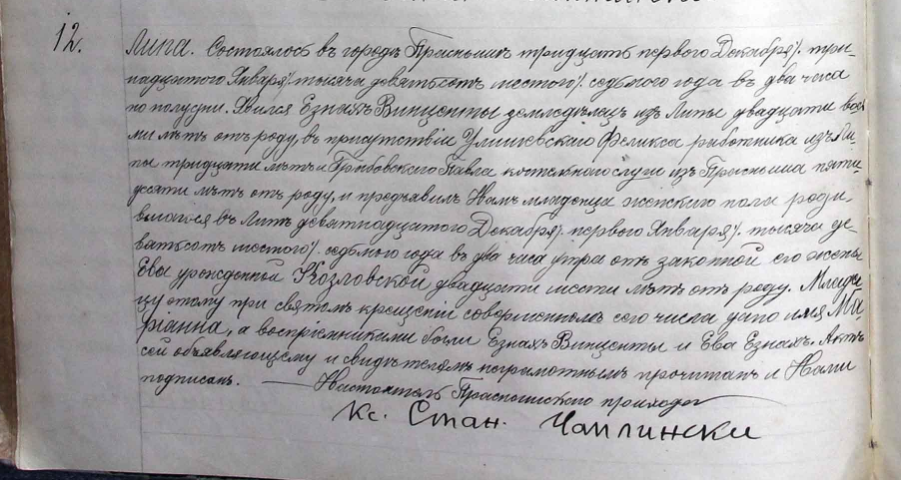 12.
Липа. Состоялось въ городѣ Праснышѣ тридцать перваго Декабря/ три-
надцатого Января/ тысяча девятьсотъ шестого/ седьмого года въ два часа
по полудни. Явился Езнахъ Винценты домледѣлецъ изъ Липы двадцати вось
ми лѣтъ отъ роду, въ присутствіи Феликса работника изъ Ли-
пы тридцати лѣтъ и Грабовскаго Павла костельнаго слуги изъ Прасныша пяти-
десяти лѣтъ отъ роду, и предъявилъ Намъ младенца женскаго пола роди-
вшагося въ Липѣ девятнадцатого Декабря/ перваго Января/ тысяча де-
вятьсотъ шестого/ седьмого года въ два часа утра отъ законной его жены
Ева урожденной Козловской двадцати шести лѣтъ отъ роду. Младен
цу этому при святомъ крещеніи совершенномъ сего числа дано имя Ма
ріанна, а воспріемниками были Езнахъ Винценты и Ева Езнахъ. Актъ
сей объявляющему и свидѣтелямъ неграмотнымъ прочитанъ и Нами
подписанъ. — Настоятель Праснышскаго прихода
Кс. Стан. Чаплински